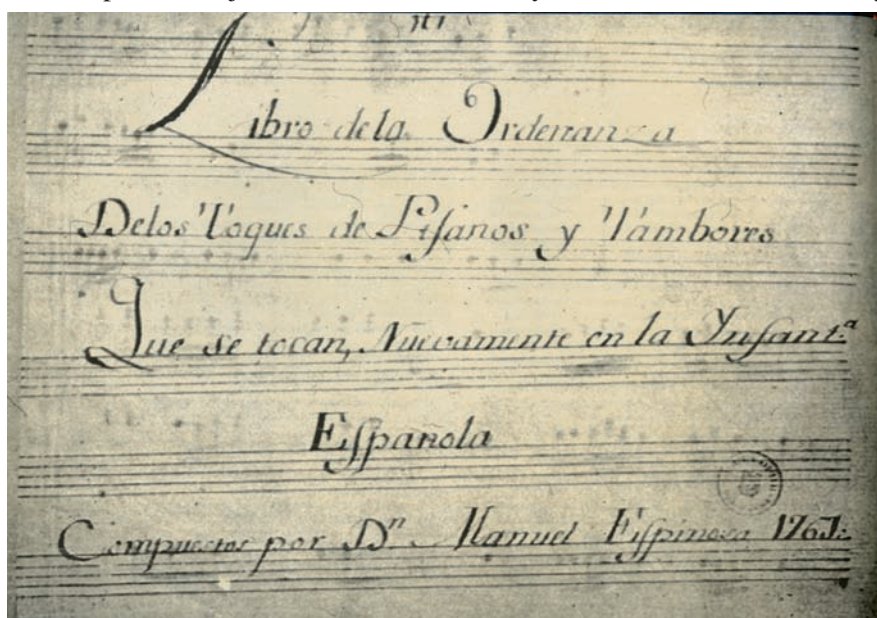 Libro de la Ordenanza
De los Toques de Pifanos y Tambores
Que se tocan, Nuevamente en la Ynfant.ª
Española
Compuestos por Dⁿ. Manuel Espinosa 1761.